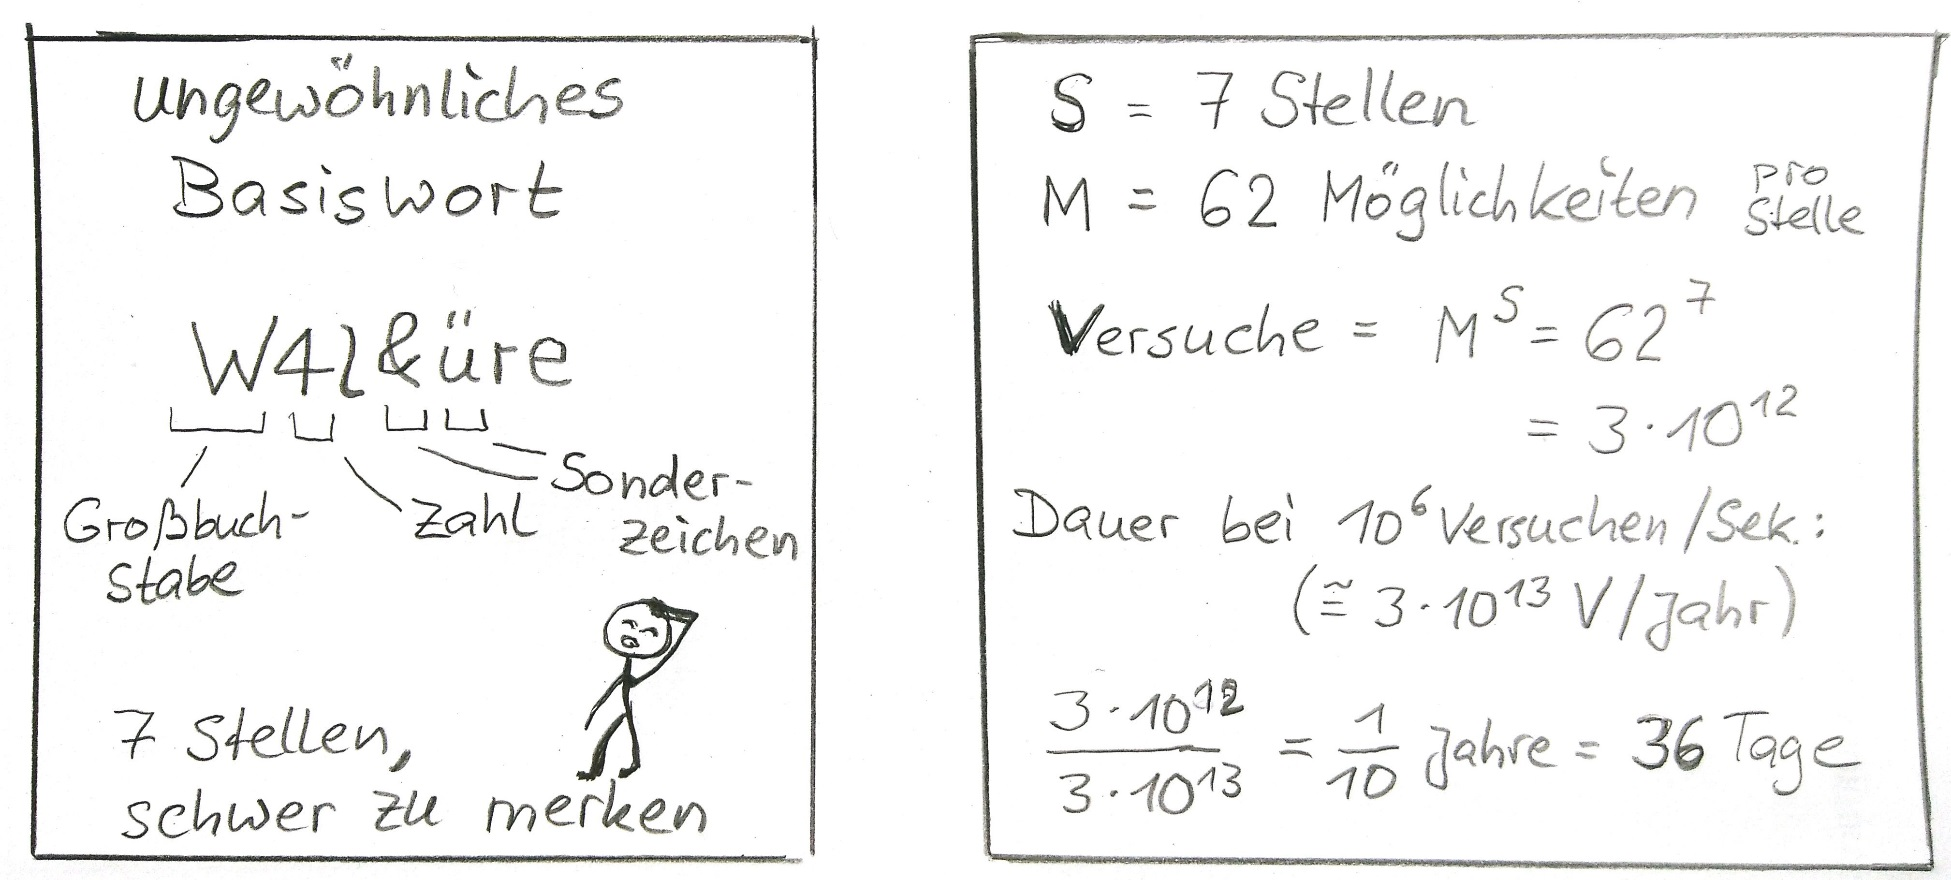 ungewöhnliches
Basiswort
W4l&üre
Großbuch-
stabe
Zahl
Sonder-
zeichen
7 Stellen,
schwer zu merken
S = 7 Stellen
M = 62 Möglichkeiten pro Stelle
Versuche = M^S = 62^7
= 3·10^12
Dauer bei 10^6 Versuchen/Sek.:
(≅ 3·10^13 V/Jahr)
3·10^12 / 3·10^13 = 1/10 Jahre = 36 Tage